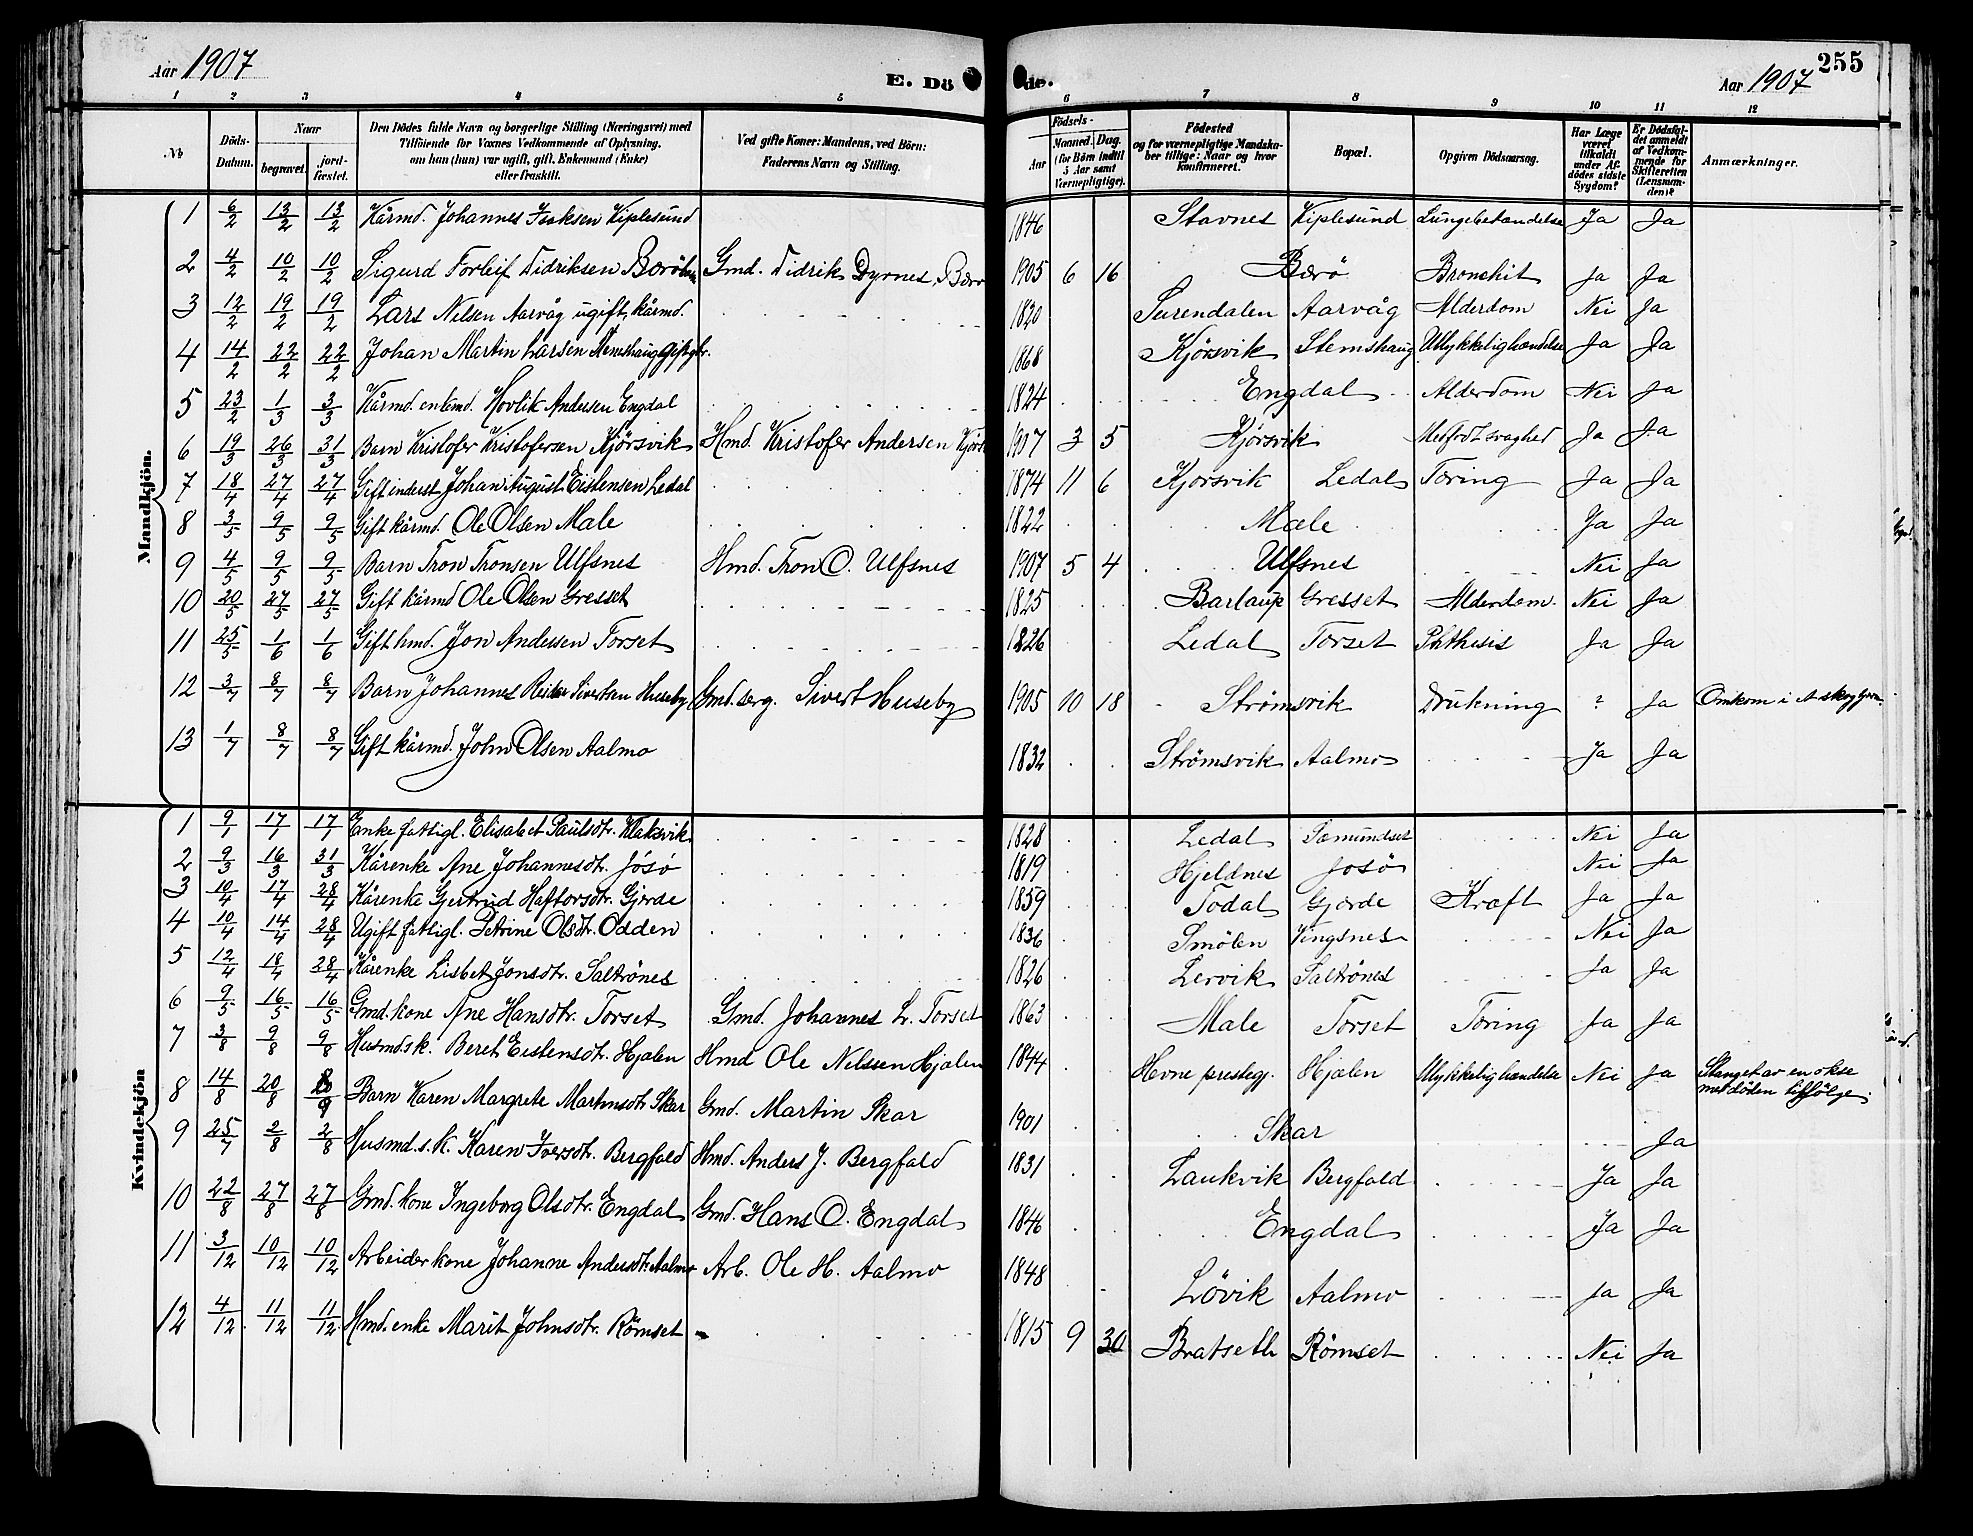 Aar 1907
E. Dö de.
Aar 1907
255
1 2 3 4 5 6 7 8 9 10 11 12
No
Döds-Datum.
Naar
begravet.
jord-fæstet.
Den Dödes fulde Navn og borgerlige Stilling (Næringsvei) med Tilföiende for Voxnes Vedkommende af Oplysning, om han (hun) var ugift, gift, Enkemand (Enke) eller fraskilt.
Ved gifte Koner: Mandens, ved Börn: Faderens Navn og Stilling.
Födsels-
Aar
Maaned. Dag.
(for Börn indtil 5 Aar samt Værnepligtige).
Födested og for værnepligtige Mandskaber tillige: Naar og hvor konfirmeret.
Bopæl.
Opgiven Dödsaarsag.
Har Læge været tilkaldt under Afdödes sidste Sygdom?
Er Dödsfaldet anmeldt af Vedkommende for Skifteretten (Lensmanden)?
Anmærkninger.
Mandkjön.
1 6/2 13/2 13/2 Kårmd. Johannes Isaksen Kiplesund 1846 Stavnes Kiplesund Lungebetændelse Ja Ja
2 4/2 10/2 10/2 Sigurd Torleif Didriksen Gmd. Didrik Dyrnes, Bærö 1905 6 16 Bærö Bronchit Ja Ja
3 12/2 19/2 19/2 Lars Nilsen Aarvåg ugift kårmd. 1820 Surendalen Aarvåg Alderdom Nei Ja
4 14/2 22/2 22/2 Johan Martin Larsen Stemshaug 1868 Kjörsvik Stemshaug Ulykkelighændelse Ja Ja
5 23/2 1/3 3/3 Kårmd. enkmd. Hovlik Andersen Engdal 1824 Engdal Alderdom Nei Ja
6 19/3 26/3 31/3 Barn Kristofer Kristofersen Kjörsvik Hmd. Kristofer Andersen 1907 3 5 Kjörsvik Medfödt svaghed Ja Ja
7 18/4 27/4 27/4 Gift inderst Johan August Eistensen Ledal 1874 11 6 Kjorsvik Ledal Tæring Ja Ja
8 3/5 9/5 9/5 Gift kårmd. Ole Olsen Mæle 1822 Mæle Ja Ja
9 4/5 9/5 9/5 Barn Tron Tronsen Ulfsnes Hmd. Tron O. Ulfsnes 1907 5 4 Ulfsnes Nei Ja
10 20/5 27/5 27/5 Gift kårmd Ole Olsen Gresset 1825 Barlaup Gresset Alderdom. Nei Ja
11 25/5 1/6 1/6 Gift hmd. Jon Andersen Torset 1826 Ledal Torset Phthisis Ja Ja
12 3/7 8/7 8/7 Barn Johannes Reidar Huseby Gmd. serg. Sivert Huseby 1905 10 18 Strömsvik Drukning ? Ja Omkom i
13 1/7 8/7 8/7 Gift kårmd. John Olsen Aalmo 1832 Strömsvik Aalmo Ja Ja
Kvindekjön
1 9/1 17/1 17/1 Enke fattigl. Elisabet Paulsdtr. Klaksvik 1828 Ledal Sæmundset Nei Ja
2 9/3 16/3 31/3 Kårenke Ane Johannesdtr. Jösö 1819 Hjeldnes Josö Nei Ja
3 10/4 17/4 28/4 Kårenke Gjertrud Haftorsdtr. Gjerde 1859 Todal Gjærde Kræft Ja Ja
4 10/4 14/4 28/4 Ugift fattigl. Petrine Olsdtr. Odden 1836 Smölen Vingsnes Nei Ja
5 12/4 18/4 28/4 Kårenke Lisbet Jonsdtr. Saltrönes 1826 Lervik Saltrönes Ja Ja
6 9/5 16/5 16/5 Gmd. kone Ane Hansdtr. Torset Gmd. Johannes L. Torset 1863 Mæle Torset Tæring Ja Ja
7 3/8 9/8 9/8 Husmdsk. Beret Eistensdtr. Hjælen Hmd Ole Nilssen Hjælen 1844 Hevne prestegj. Hjælen Ulykkelighændelse Nei Ja Stanget av en okse
met döden tilfölge.
8 14/8 20/8 8/9 Barn Karen Margrete Martinsdtr Skar Gmd. Martin Skar 1901 Skar Ja
9 25/7 2/8 2/8 Husmd.s.k. Karen Iversdtr. Bergfald Hmd. Anders J. Bergfald 1831 Laukvik Bergfald Ja Ja
10 22/8 27/8 27/8 Gmd. kone Ingeborg Olsdtr. Engdal Gmd. Hans O. Engdal 1846 Engdal Ja Ja
11 3/12 10/12 10/12 Arbeiderkone Johanne Andersdtr. Aalmo Arb. Ole H. Aalmo 1848 Lövik Aalmo Ja Ja
12 4/12 11/12 11/12 Hmd. enke Marit Johnsdtr. Römset 1815 9 30 Bratseth Römset Nei Ja